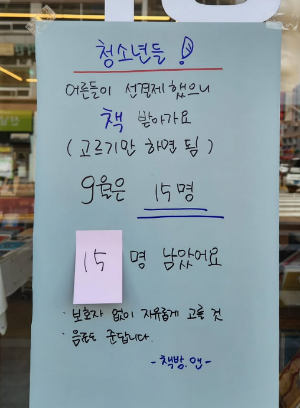 청소년들!
어른들이 선결제 했으니
책 받아가요
(고르기만 하면 됨)
9월은 15명
15 명 남았어요
· 보호자 없이 자유롭게 고를 것
· 음료도 준답니다.
- 책방.앤 -